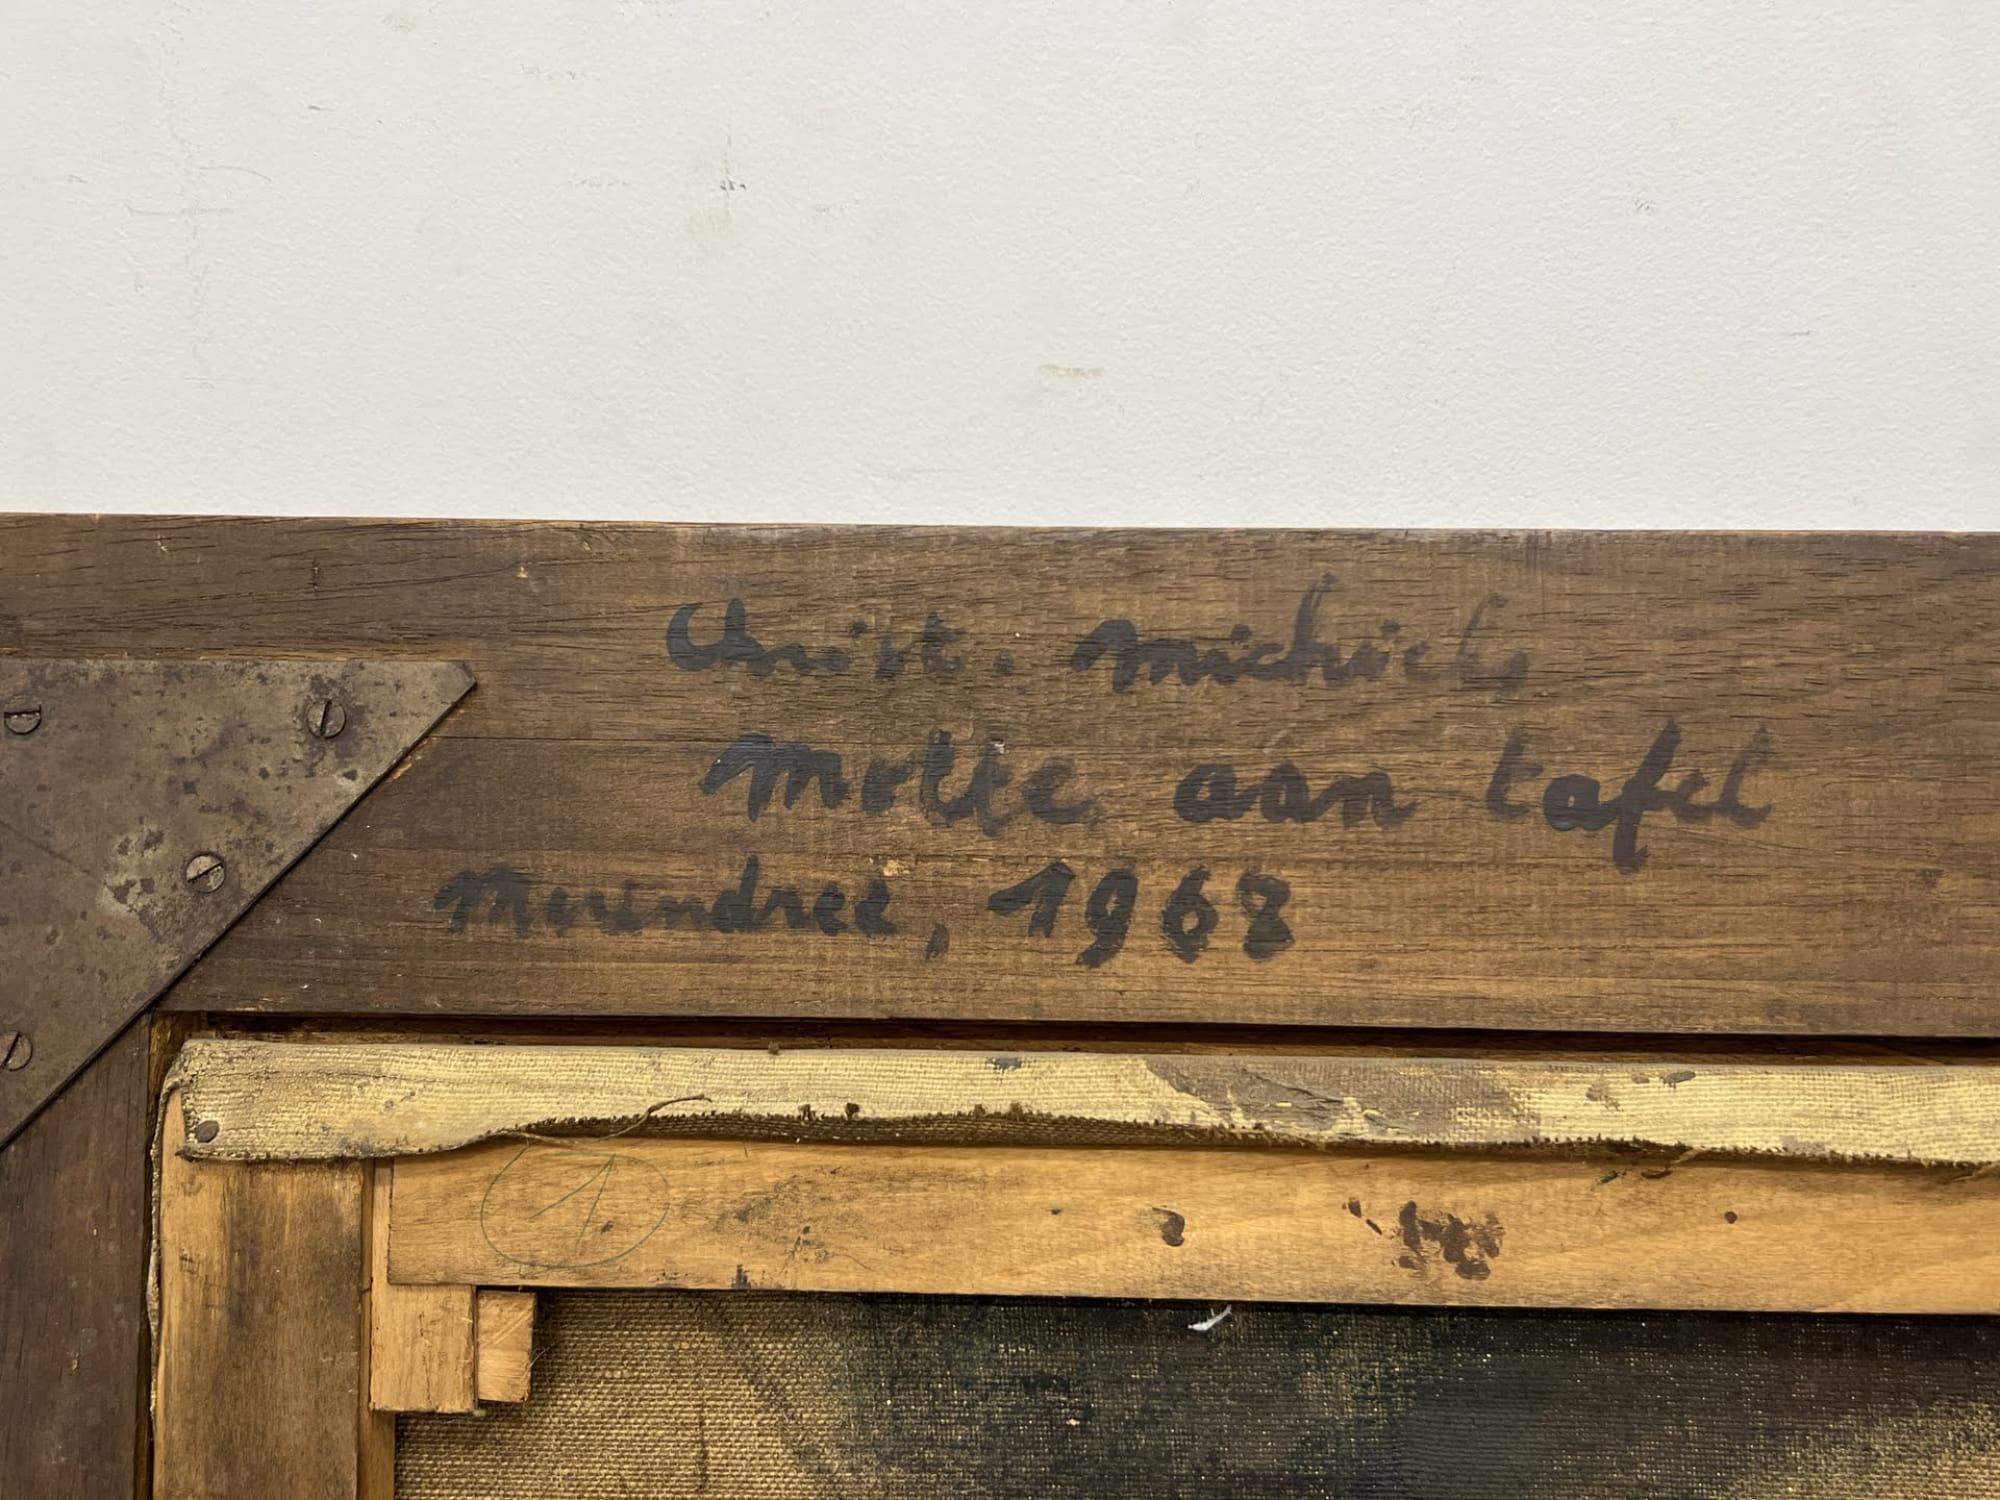 Christ. Michiels
Motte aan tafel
Merendree, 1968
1